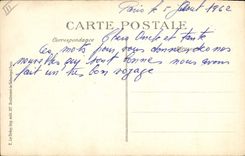 Paris le 5 Août 1962
CARTE POSTALE
Correspondance
Chers Oncle et Tante
Ces mots pour vous donner de nos
nouvelles qui sont bonnes nous avons
fait un très bon voyage